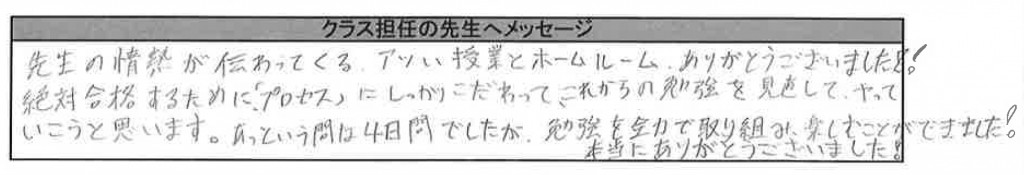 クラス担任の先生へメッセージ
先生の情熱が伝わってくる、アツい授業とホームルーム、ありがとうございました!!
絶対合格するために「プロセス」にしっかりこだわってこれからの勉強を見直して、やって
いこうと思います。あっという間な4日間でしたが、勉強を全力で取り組み、楽しむことができました!
本当にありがとうございました!